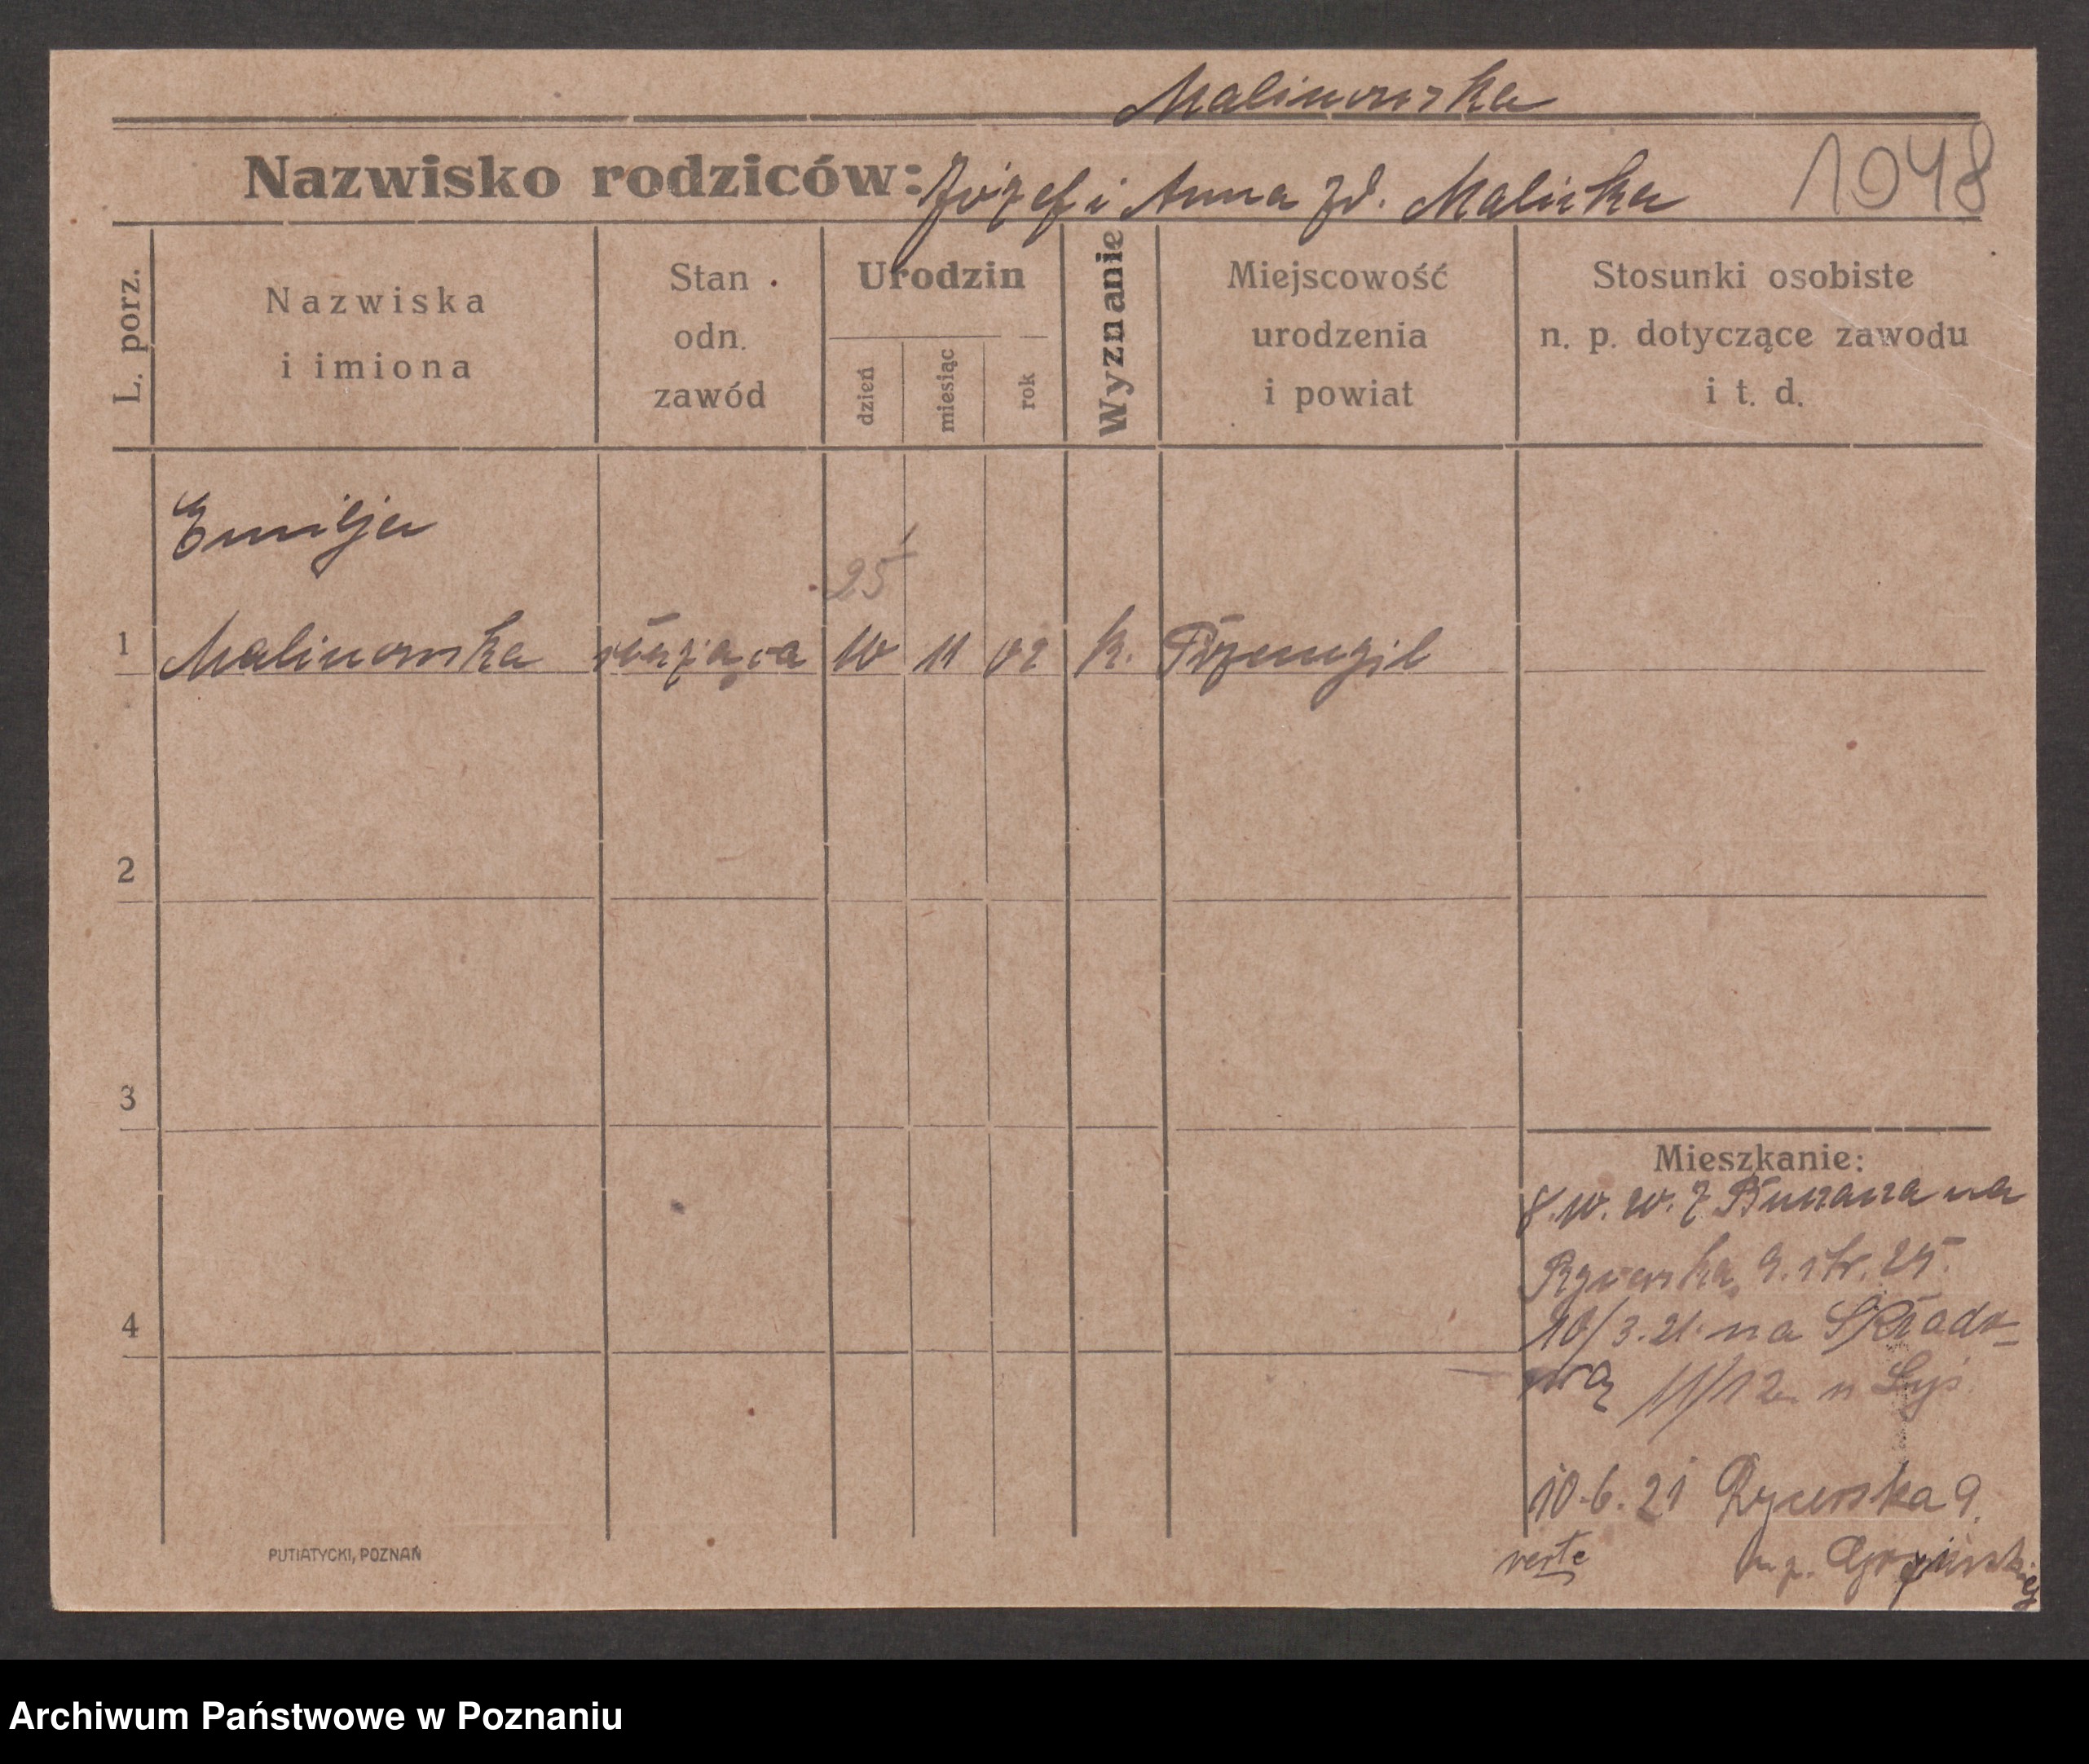 Malinowska
Nazwisko rodziców: Józef i Anna zd. Malicka
1048
L. porz.
Nazwiska
i imiona
Stan
odn.
zawód
Urodzin
dzień
miesiąc
rok
Wyznanie
Miejscowość
urodzenia
i powiat
Stosunki osobiste
n. p. dotyczące zawodu
i t. d.
Emilja
25
1 Malinowska służąca 10 11 02 k.
2
3
4
Mieszkanie:
8. 10. 20. z na
Rycerska 9. str. 25.
10/3.21. na Składo-
wą 11/12
10.6.21 Rycerska 9.
verte
PUTIATYCKI, POZNAŃ
Archiwum Państwowe w Poznaniu